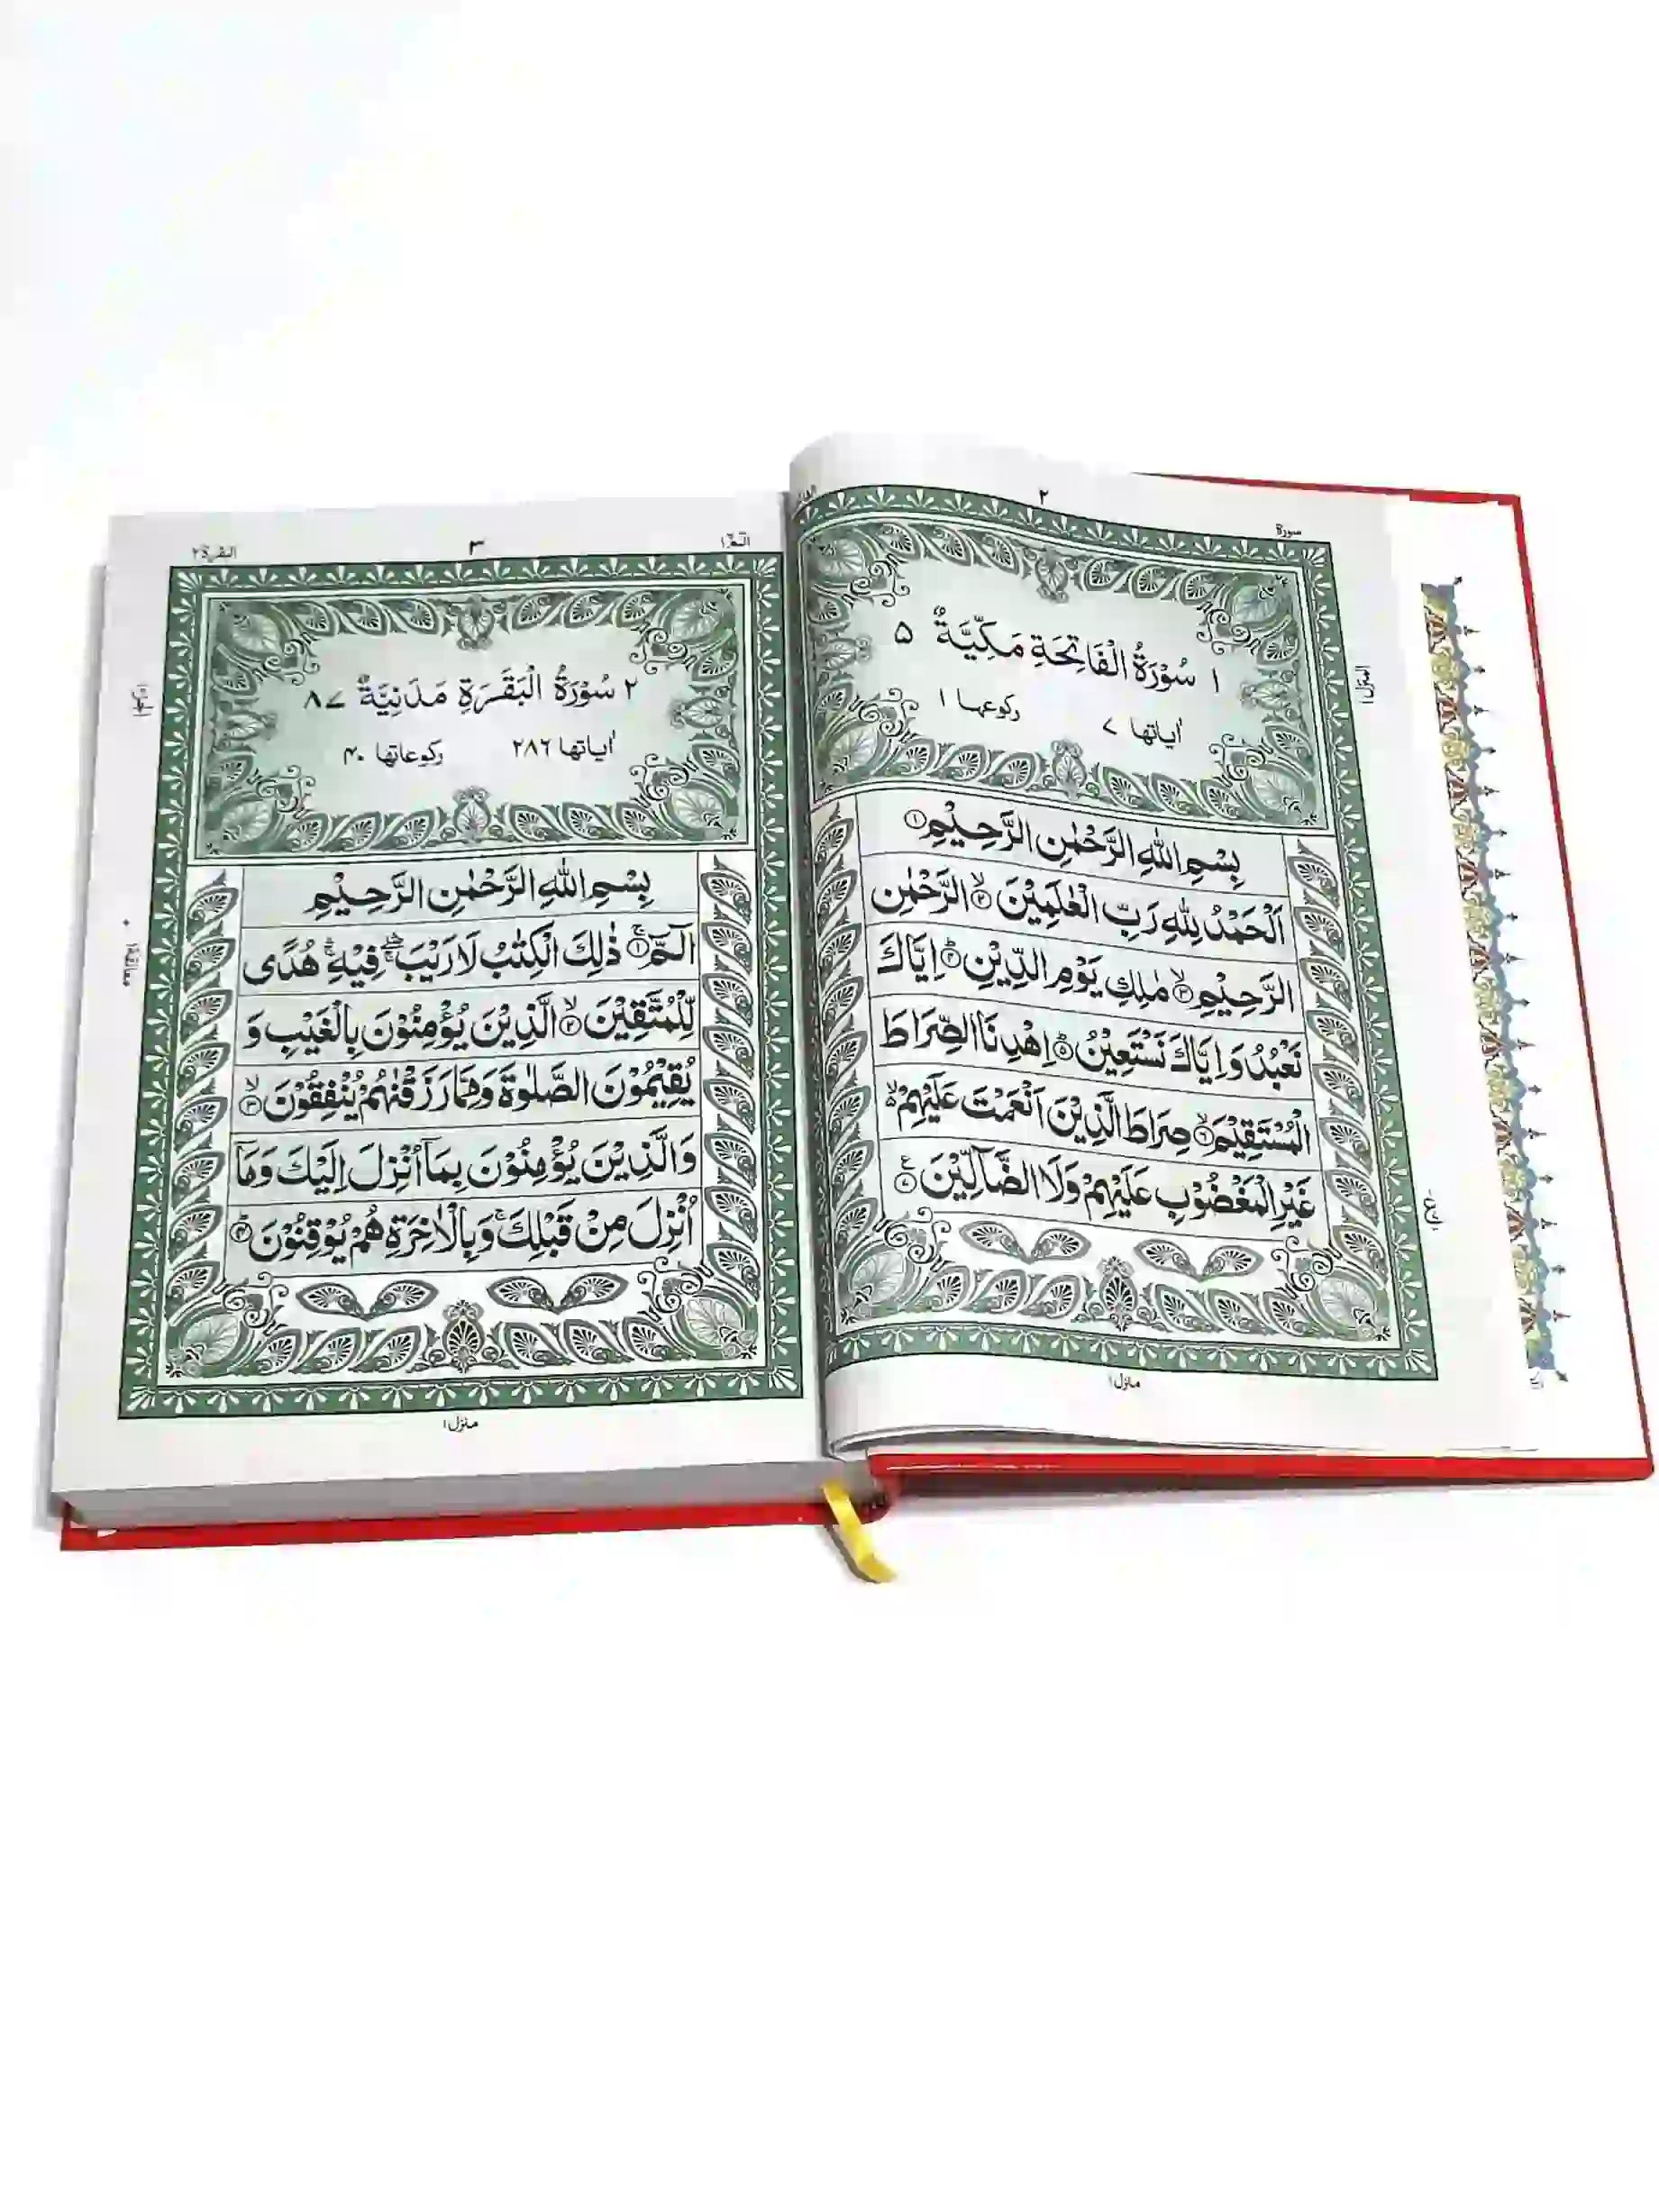 ٢
سورة
١ سُوْرَةُ الْفَاتِحَةِ مَكِّيَّةٌ ٥
اٰیاتها ٧ رکوعها ١
بِسْمِ اللّٰهِ الرَّحْمٰنِ الرَّحِیْمِ ①
اَلْحَمْدُ لِلّٰهِ رَبِّ الْعٰلَمِیْنَ ②ۙ الرَّحْمٰنِ
الرَّحِیْمِ ③ۙ مٰلِكِ یَوْمِ الدِّیْنِ ④ؕ اِیَّاكَ
نَعْبُدُ وَ اِیَّاكَ نَسْتَعِیْنُ ⑤ؕ اِهْدِنَا الصِّرَاطَ
الْمُسْتَقِیْمَ ⑥ۙ صِرَاطَ الَّذِیْنَ اَنْعَمْتَ عَلَیْهِمْ ۙ۬
غَیْرِ الْمَغْضُوْبِ عَلَیْهِمْ وَلَا الضَّآلِّیْنَ ⑦
منزل ١
المنزل ١
البقرة ٢
٣
الٓمّٓ ١
٢ سُوْرَةُ الْبَقَرَةِ مَدَنِیَّةٌ ٨٧
اٰیاتها ٢٨٦ رکوعاتها ۴٠
بِسْمِ اللّٰهِ الرَّحْمٰنِ الرَّحِیْمِ
الٓمّٓ ①ۚ ذٰلِكَ الْكِتٰبُ لَا رَیْبَ ۛۖۚ فِیْهِ ۛۚ هُدًی
لِّلْمُتَّقِیْنَ ②ۙ الَّذِیْنَ یُؤْمِنُوْنَ بِالْغَیْبِ وَ
یُقِیْمُوْنَ الصَّلٰوةَ وَمِمَّا رَزَقْنٰهُمْ یُنْفِقُوْنَ ③ۙ
وَالَّذِیْنَ یُؤْمِنُوْنَ بِمَاۤ اُنْزِلَ اِلَیْكَ وَمَاۤ
اُنْزِلَ مِنْ قَبْلِكَ ۚ وَبِالْاٰخِرَةِ هُمْ یُوْقِنُوْنَ ④ؕ
منزل ١
معانقة ١